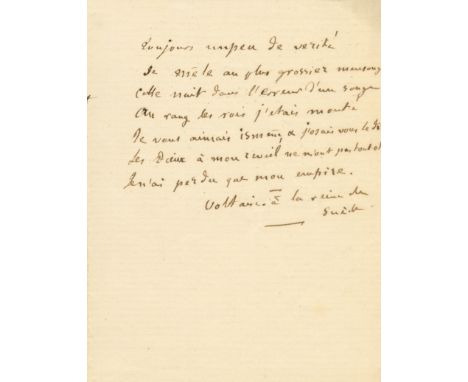 toujours un peu de verité
se mêle au plus grossier mensong
cette nuit dans l'erreur d'un songe
au rang des rois j'etais monté
Je vous aimais & j'osais vous le di
Les Dieux à mon reveil ne m'ont pas tout ot
Je n'ai perdu que mon empire.
Voltaire. à la reine de
Suède